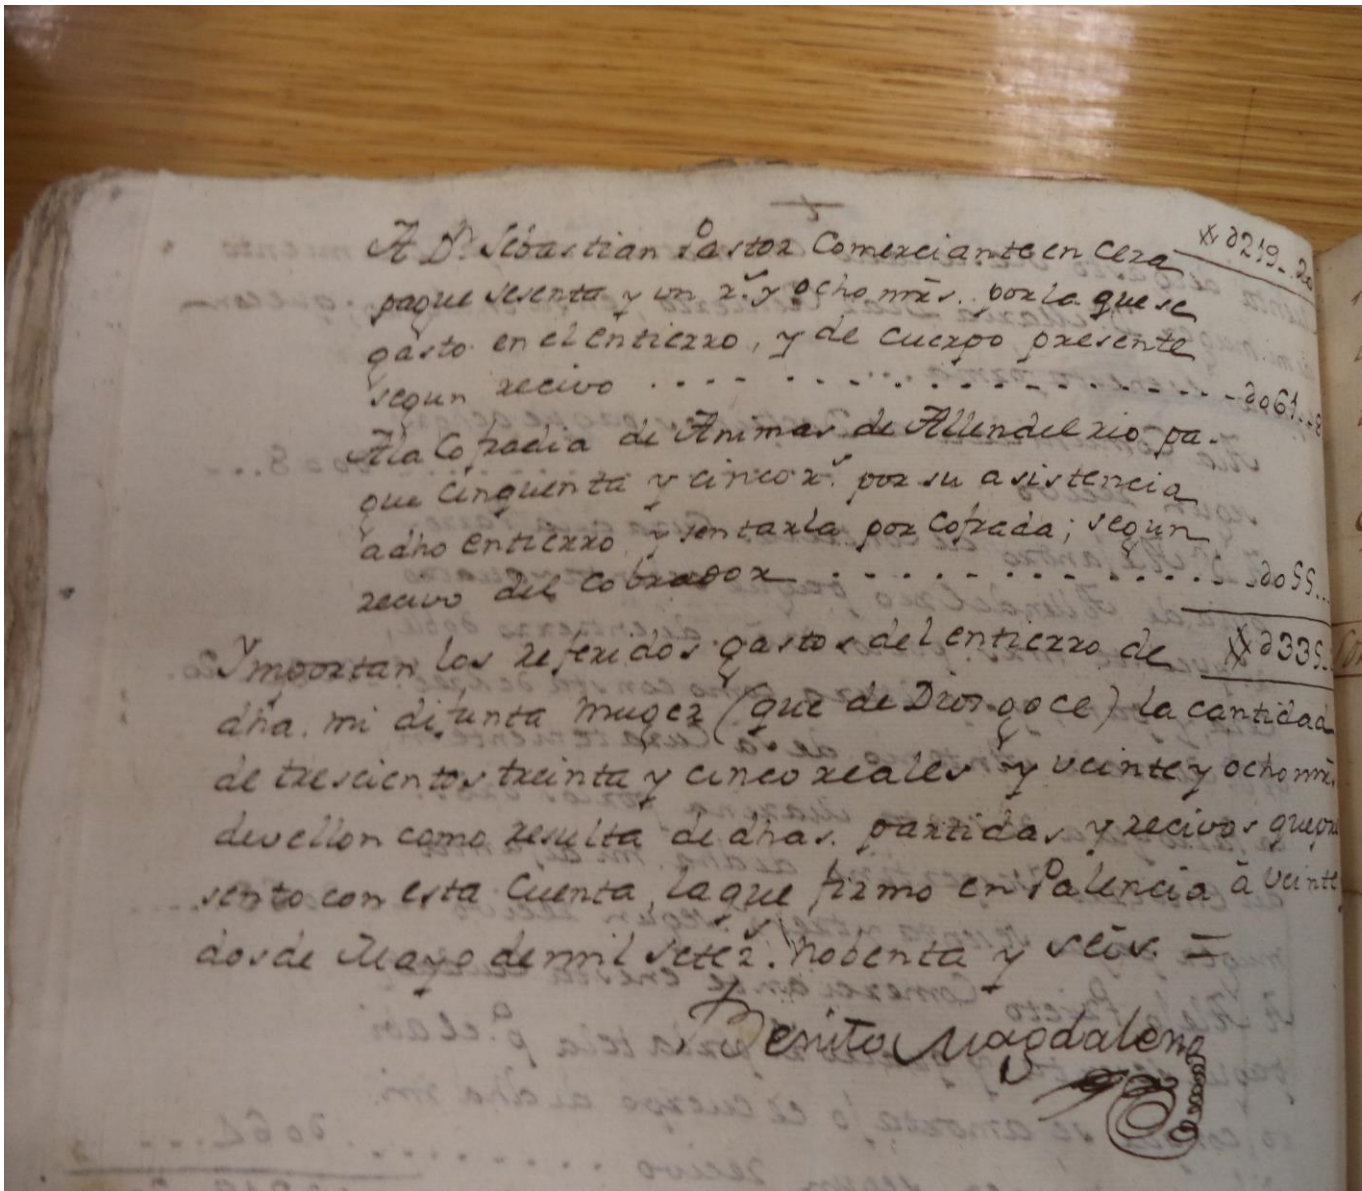 A Dn. Sebastian Pastor Comerciante en Cera
xx d219..20
pague sesenta y un rs. y ocho mrs. por la que se
gasto en el entierro, y de cuerpo presente
segun recivo . . . . . . . . . . . . . . . . do61..8
A la Cofradia de Animas de Allendelrio pa-
gue cinquenta y cinco rs. por su asistencia
a dho entierro y sentarla por Cofrada; segun
recivo del Cobrador . . . . . . . . . . . . . do55...
Ymportan los referidos gastos del entierro de
xx d335..
dha. mi difunta muger (que de Dios goce) la cantidad
de trescientos treinta y cinco reales y veinte y ocho mrs.
de vellon como resulta de dhas. partidas y recivos que pre
sento con esta Cuenta, la que firmo en Palencia à veinte
dos de Mayo de mil setezs. nobenta y seis =
Benito Magdaleno